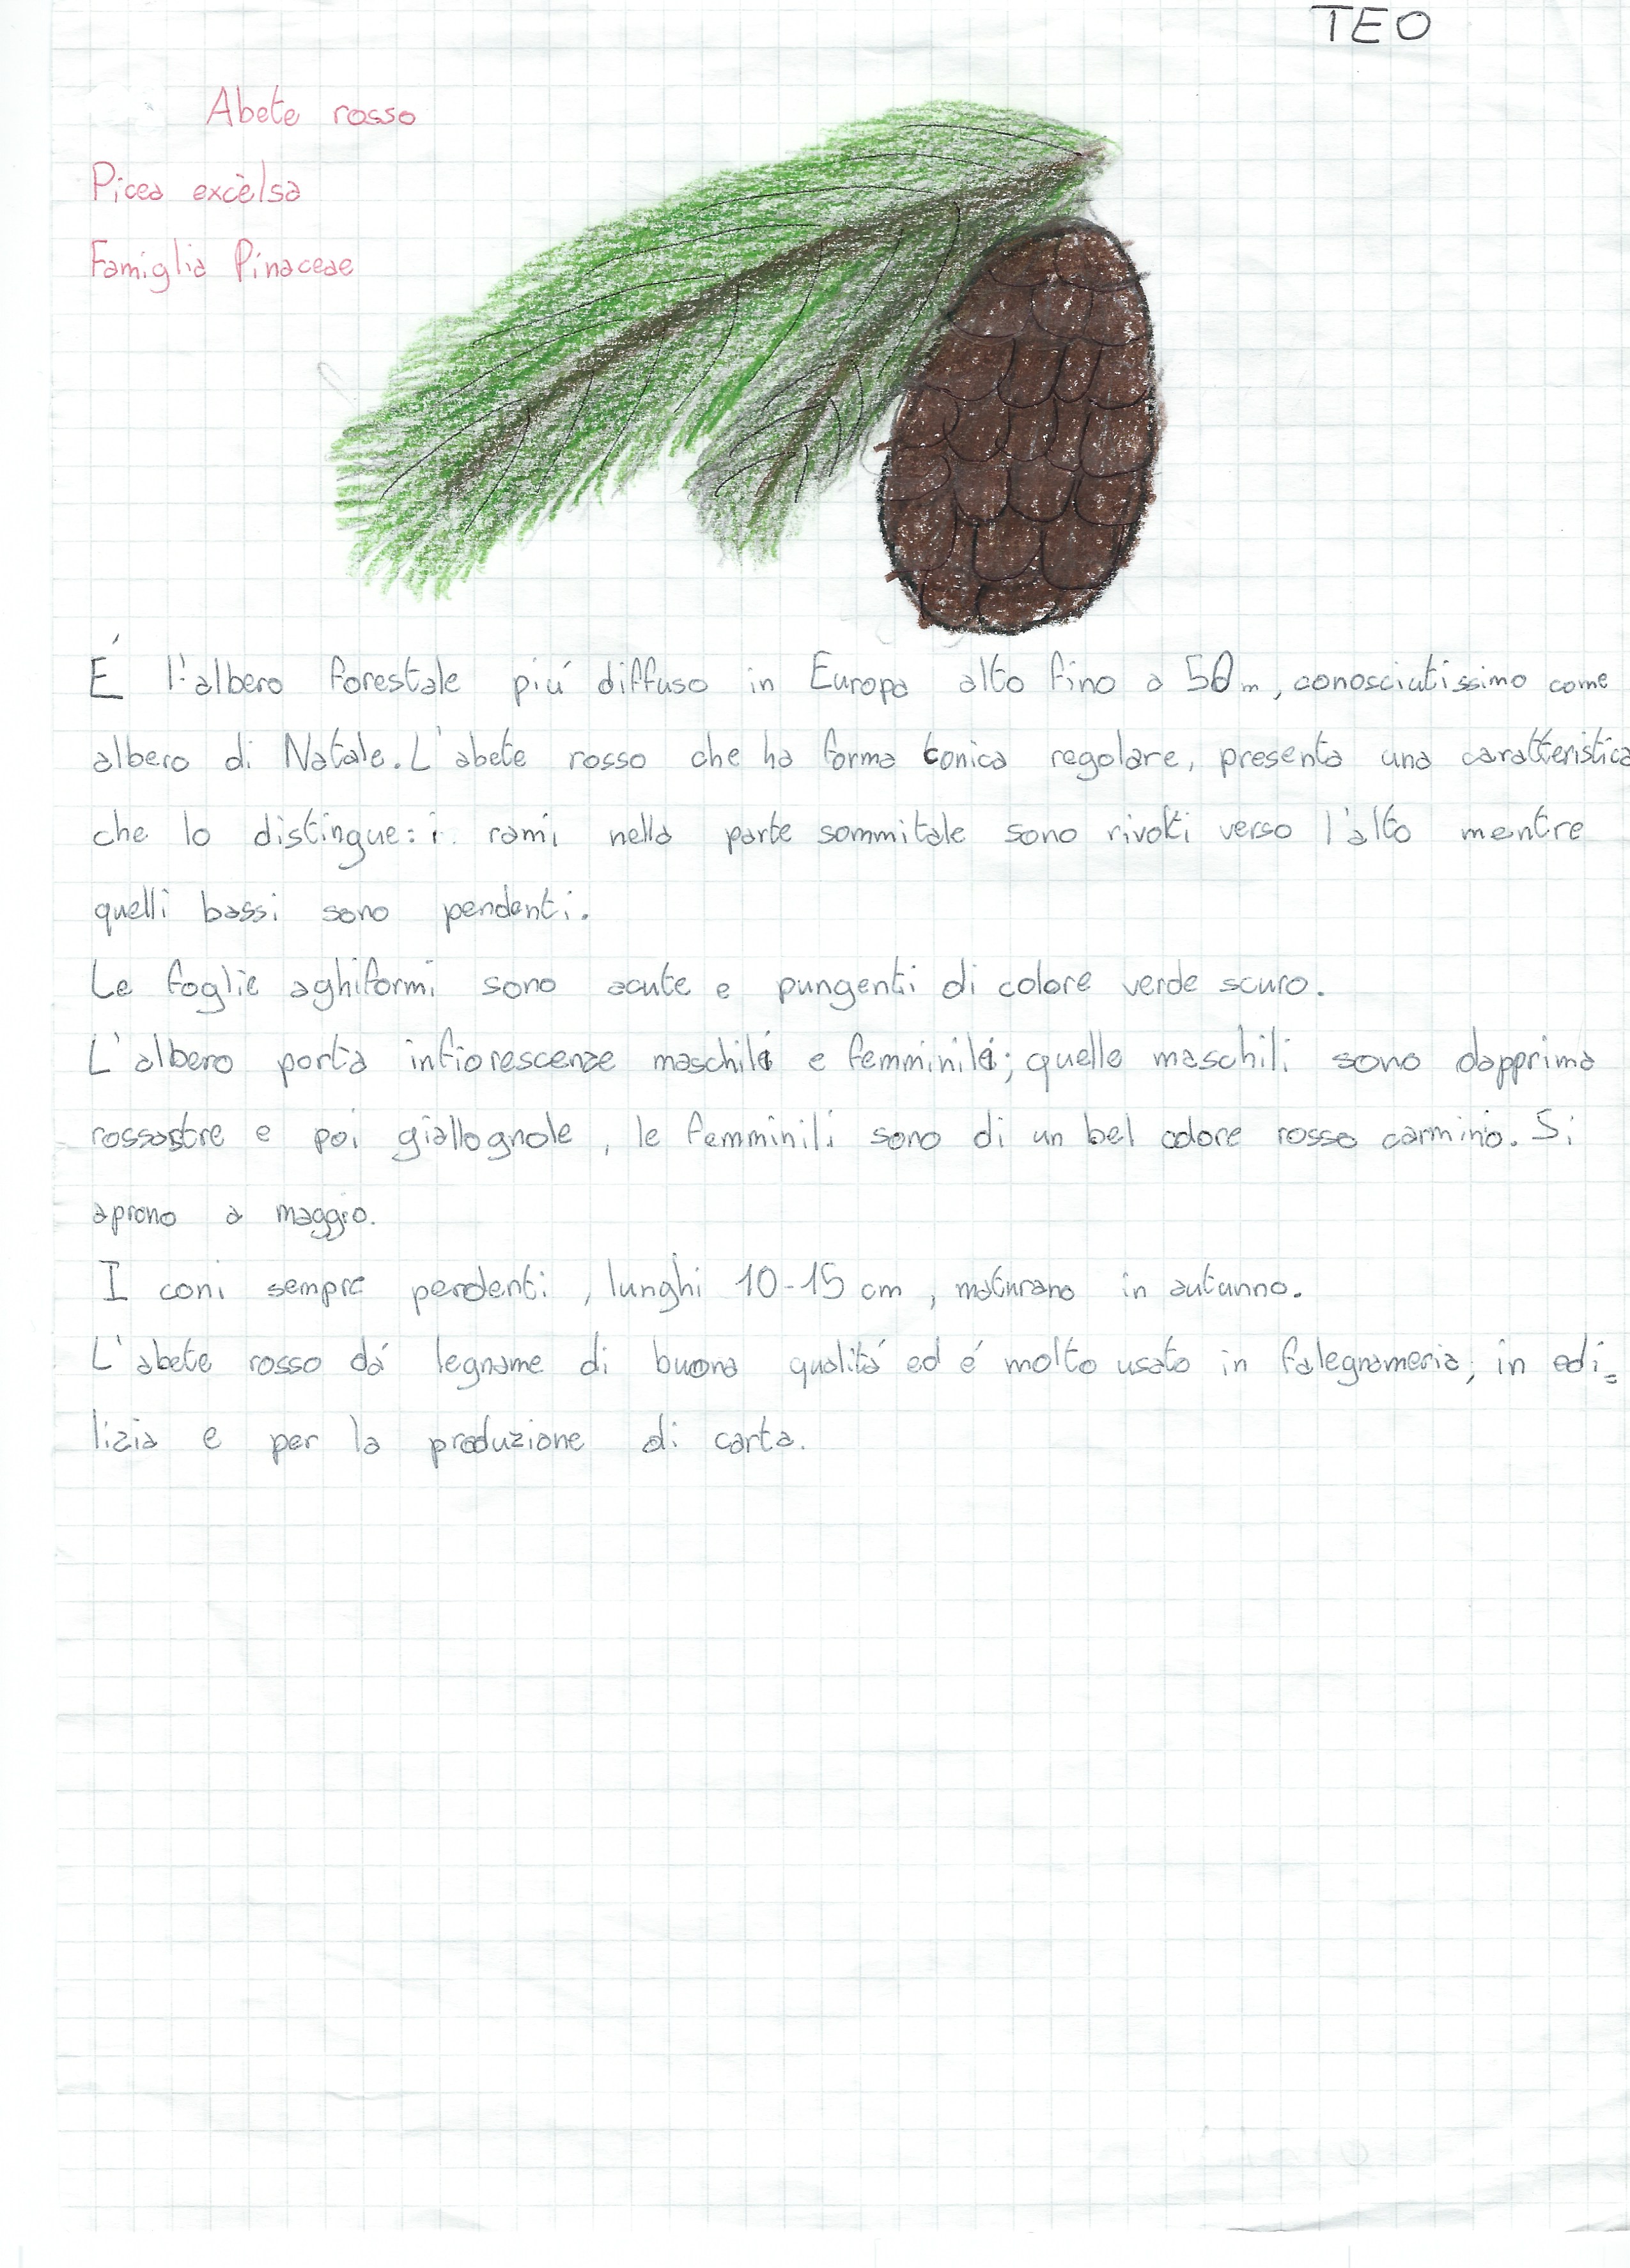 TEO
Abete rosso
Picea excèlsa
Famiglia Pinaceae
É l'albero forestale piú diffuso in Europa alto fino a 50 m, conosciutissimo come
albero di Natale. L'abete rosso che ha forma conica regolare, presenta una caratteristica
che lo distingue: i rami nella parte sommitale sono rivolti verso l'alto mentre
quelli bassi sono pendenti.
Le foglie aghiformi sono acute e pungenti di colore verde scuro.
L'albero porta infiorescenze maschili e femminili; quelle maschili sono dapprima
rossastre e poi giallognole, le femminili sono di un bel colore rosso carminio. Si
aprono a maggio.
I coni sempre pendenti, lunghi 10-15 cm, maturano in autunno.
L'abete rosso dá legname di buona qualitá ed é molto usato in falegnameria, in edi=
lizia e per la produzione di carta.